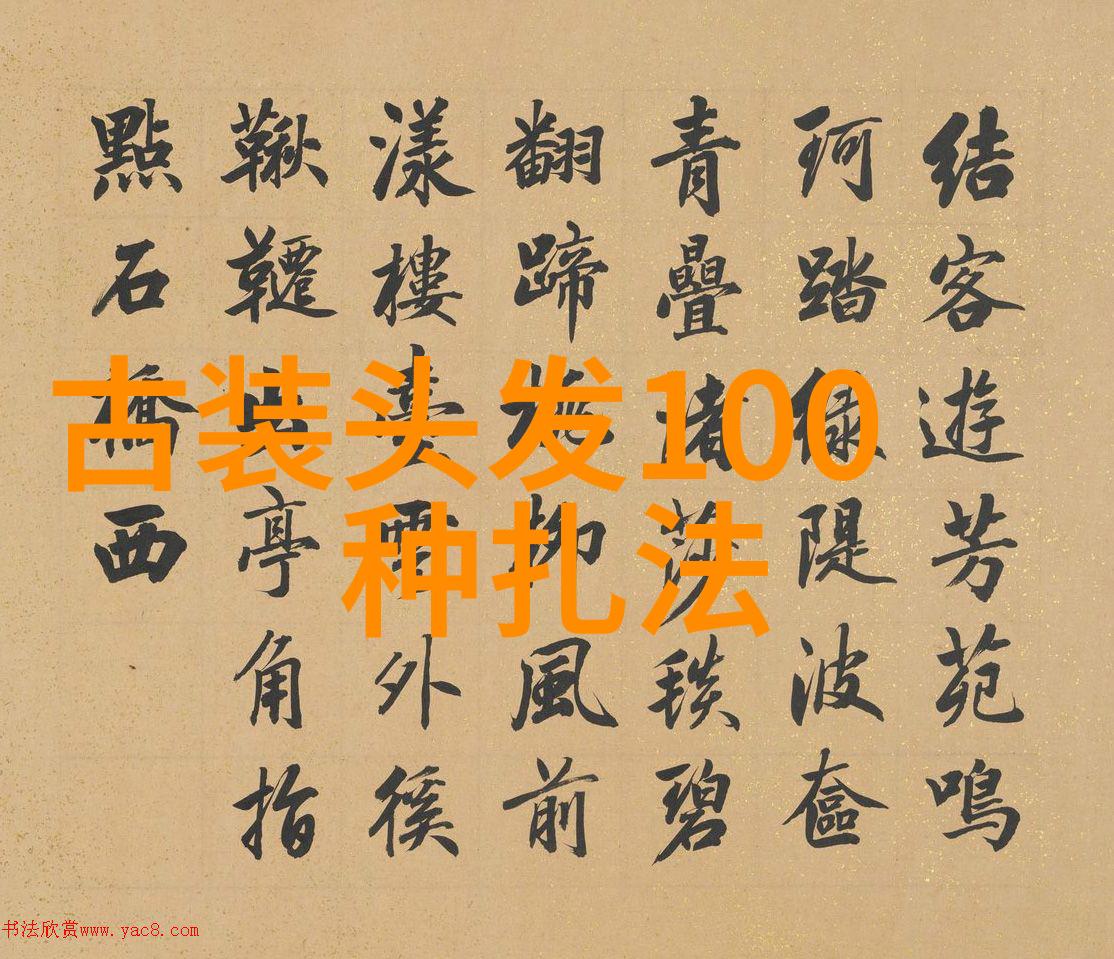 古装头发100
种扎法
結客遊芳苑鳴
珂踏綠隄波奩
青疊渚莎毯碧
翻蹄柳風前
漾樓臺外徯
鞦韆亭角指
點石橋西
书法欣赏www.yac8.com